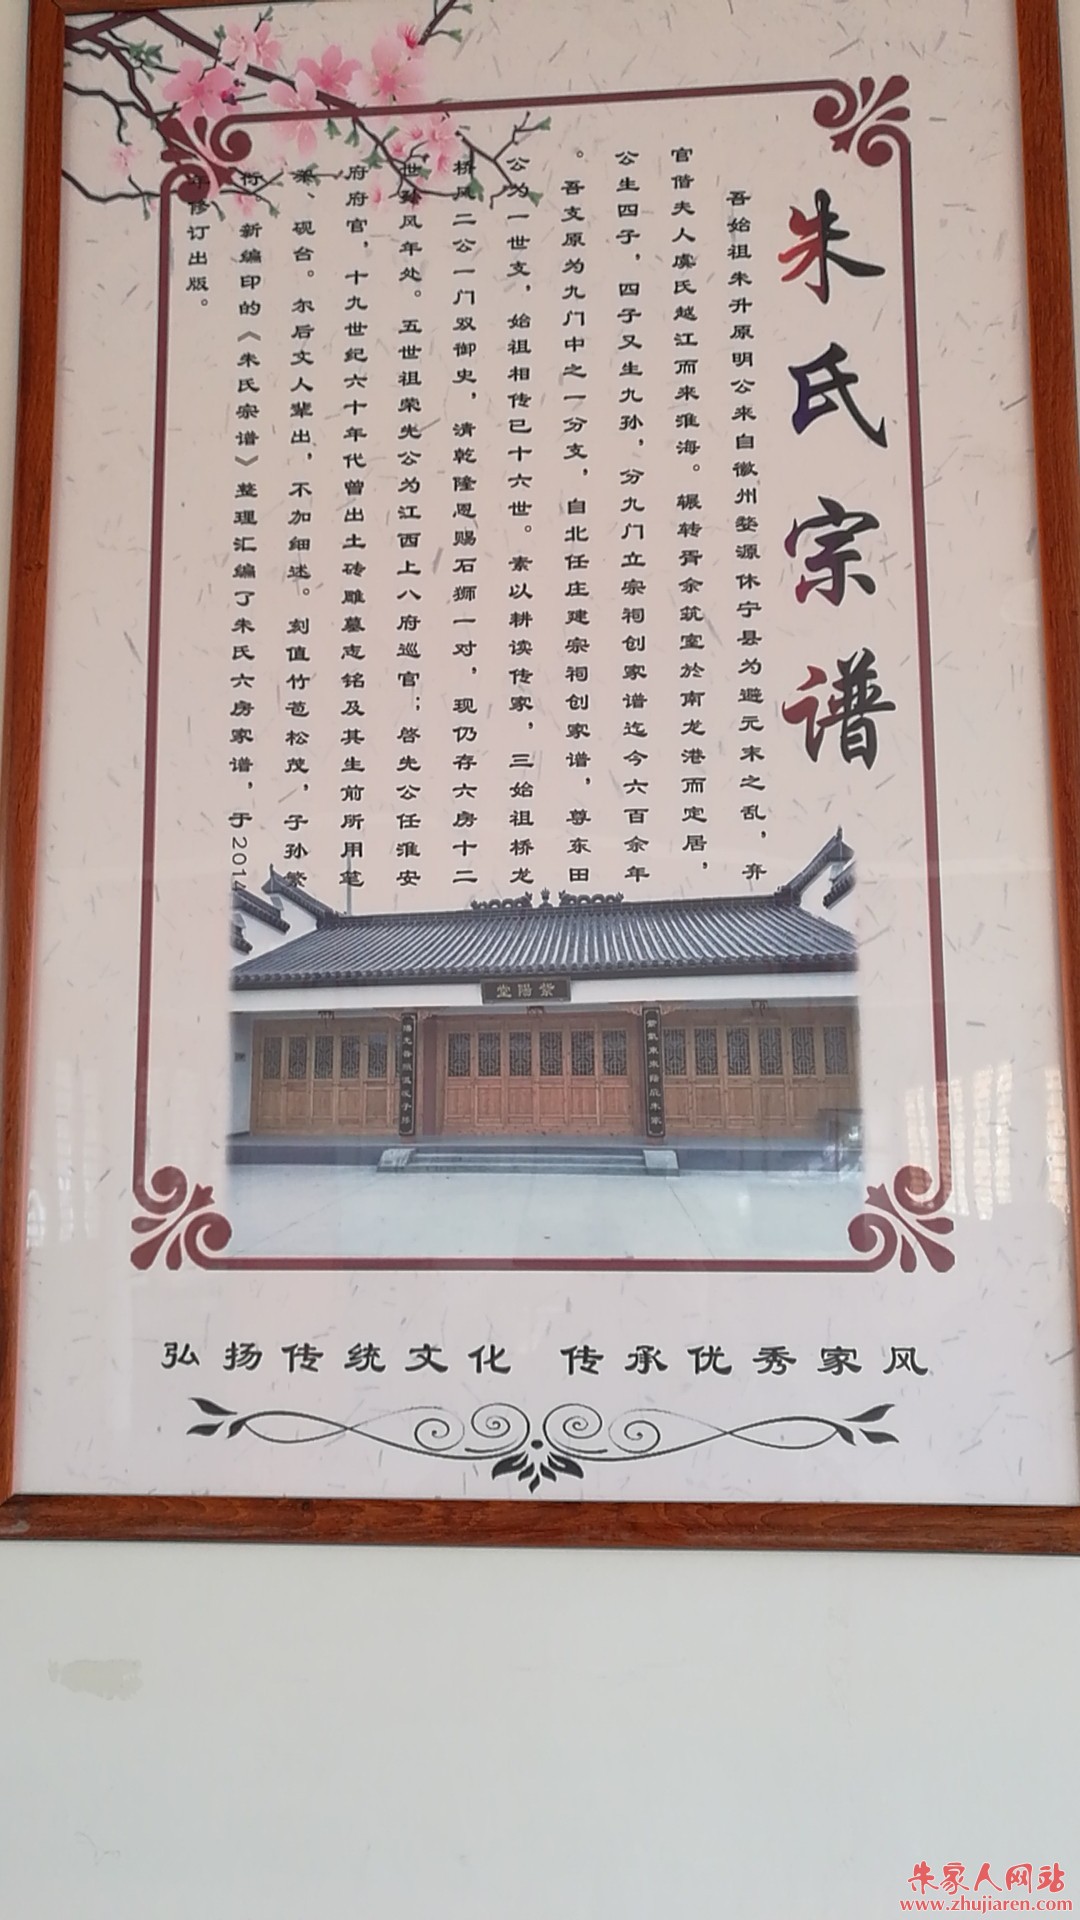 朱氏宗谱
吾始祖朱升原明公来自徽州婺源休宁县为避元末之乱，弃
官偕夫人虞氏越江而来淮海。辗转胥余筑室於南龙港而定居，
公生四子，四子又生九孙，分九门立宗祠创家谱迄今六百余年
。吾支原为九门中之一分支，自北任庄建宗祠创家谱，尊东田
公为一世支，始祖相传已十六世。素以耕读传家，三始祖桥龙
桥凤二公一门双御史，清乾隆恩赐石狮一对，现仍存六房十二
世孙风年处。五世祖荣先公为江西上八府巡官；啓先公任淮安
府府官，十九世纪六十年代曾出土砖雕墓志铭及其生前所用笔
架、砚台。尔后文人辈出，不加细述。刻值竹苞松茂，子孙繁
衍。新编印的《朱氏宗谱》整理汇编了朱氏六房家谱，于2014
年修订出版。
紫陽堂
弘扬传统文化 传承优秀家风
朱家人网站
www.zhujiaren.com